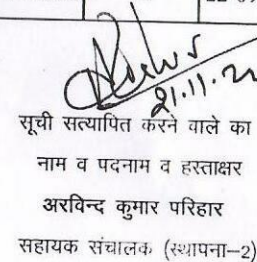 21.11.2
सूची सत्यापित करने वाले का
नाम व पदनाम व हस्ताक्षर
अरविन्द कुमार परिहार
सहायक संचालक (स्थापना-2)